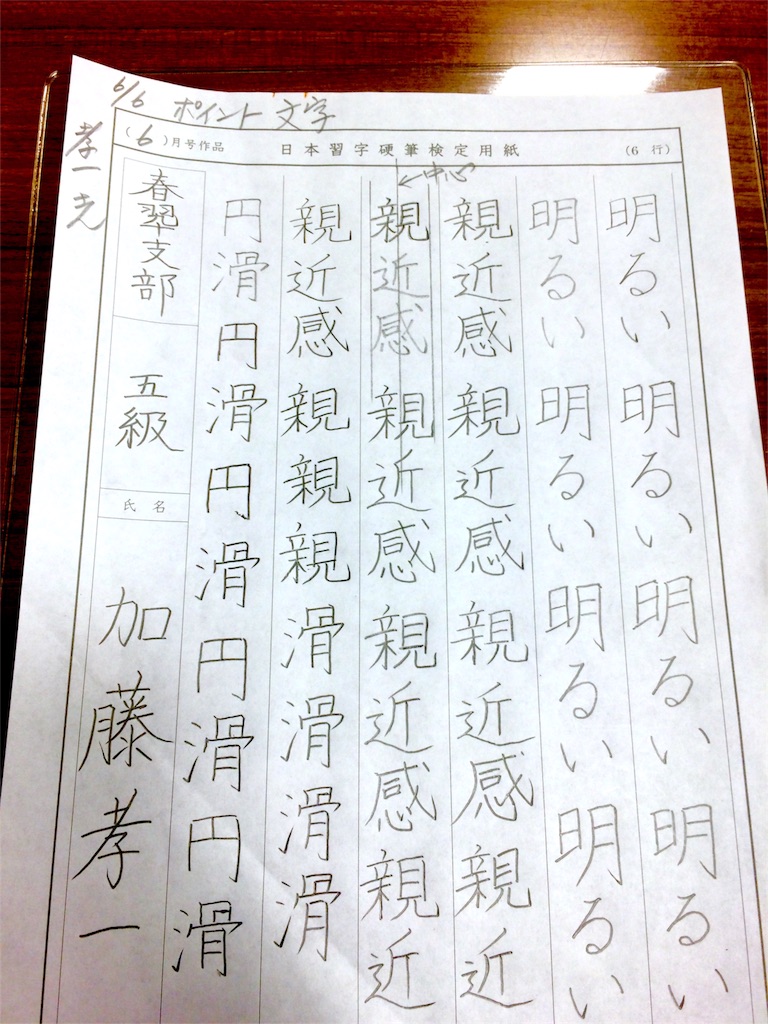 6/6 ポイント文字
(6)月号作品 日本習字硬筆検定用紙 (6 行)
←中心
明るい明るい明るい明るい
明るい明るい明るい明るい
親近感親近感親近感親近
親近感親近感親近感親近
親近感親親親滑滑滑滑
円滑円滑円滑円滑円滑
春翠支部
五級
氏名
加藤孝一
孝一